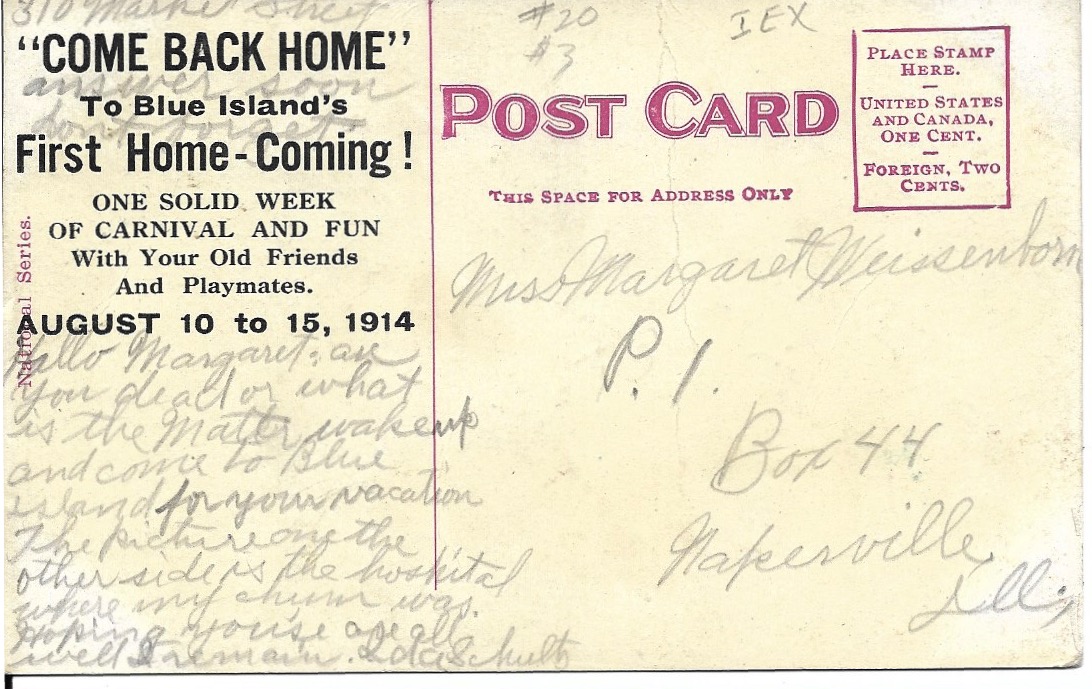 310 Market Street
"COME BACK HOME"
answer soon
To Blue Island's
don't forget
First Home-Coming!
ONE SOLID WEEK
OF CARNIVAL AND FUN
With Your Old Friends
And Playmates.
AUGUST 10 to 15, 1914
National Series.
Hello Margaret: are
you dead or what
is the Matter wake up
and come to Blue
island for your vacation
The picture one the
other side is the hospital
where my chum was.
Hoping youse are all
well I remain. Ida Schultz
#20
#3
IEX
POST CARD
THIS SPACE FOR ADDRESS ONLY
PLACE STAMP
HERE.
—
UNITED STATES
AND CANADA,
ONE CENT.
—
FOREIGN, TWO
CENTS.
Miss Margaret Weissenborn
P. 1.
Box 44
Naperville
Ill;